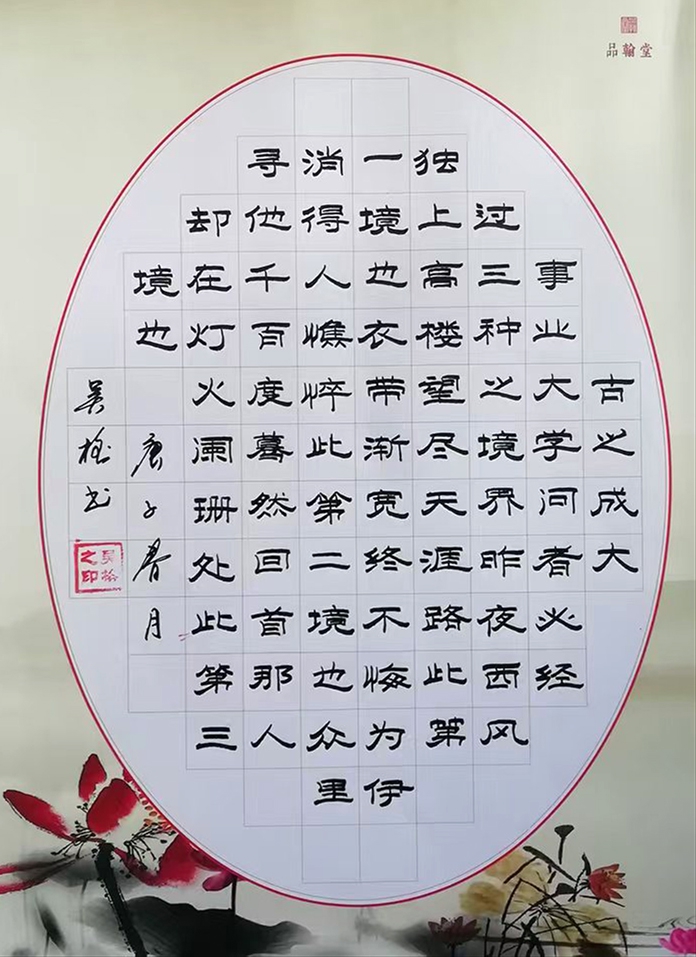 品翰堂
古之成大
事业大学问者必经
过三种之境界昨夜西风
独上高楼望尽天涯路此第
一境也衣带渐宽终不悔为伊
消得人憔悴此第二境也众里
寻他千百度蓦然回首那人
却在灯火阑珊处此第三
境也
庚子春月
吴 书
吴 之印